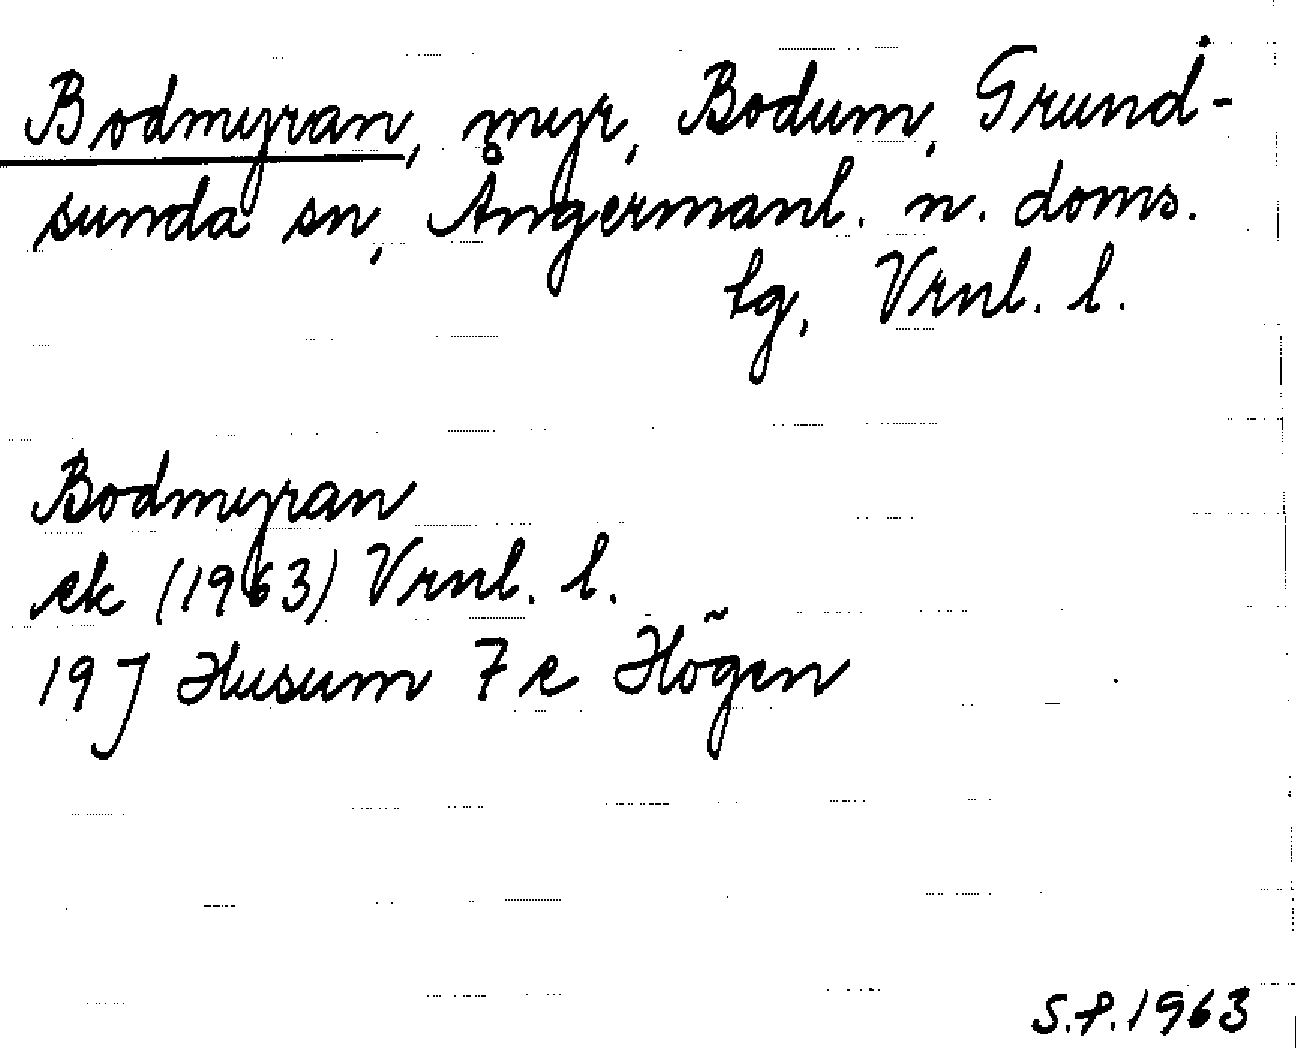 Bodmyran, myr, Bodum, Grund-
sunda sn, Ångermanl. n. doms.
lg, Vrnl. l.
Bodmyran
ek (1963) Vrnl. l.
19 J Husum 7 e Högen
S.P. 1963